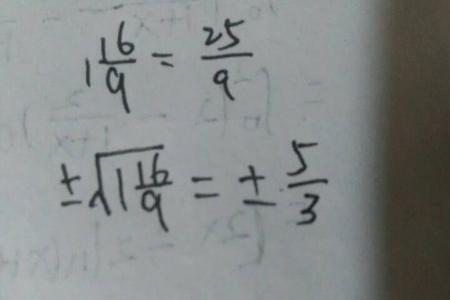 1 16/9 = 25/9
±√(1 16/9) = ± 5/3